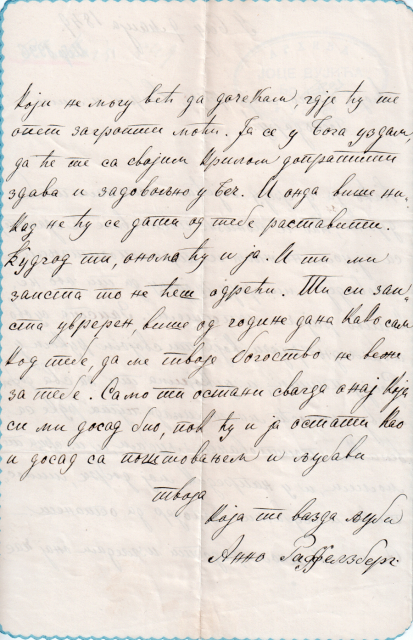 који не могу већ да дочекам, гдје ћу те
опет загрлити моћи. Ја се у Бога уздам,
да ће те са својим крилом допратити
здава и задовољно у Беч. И онда више ни-
кад не ћу се дати од тебе раставити.
Кудгод ти, онамо ћу и ја. И ти ми
заиста то не ћеш одрећи. Ти си заи-
ста увјерен, више од године дана како сам
код тебе, да ме твоје богатство не веже
за тебе. Само ти остани свагда онај који
си ми досад био, пак ћу и ја остати као
и досад са поштовањем и љубави
твоја
која те вазда љуби
Анна